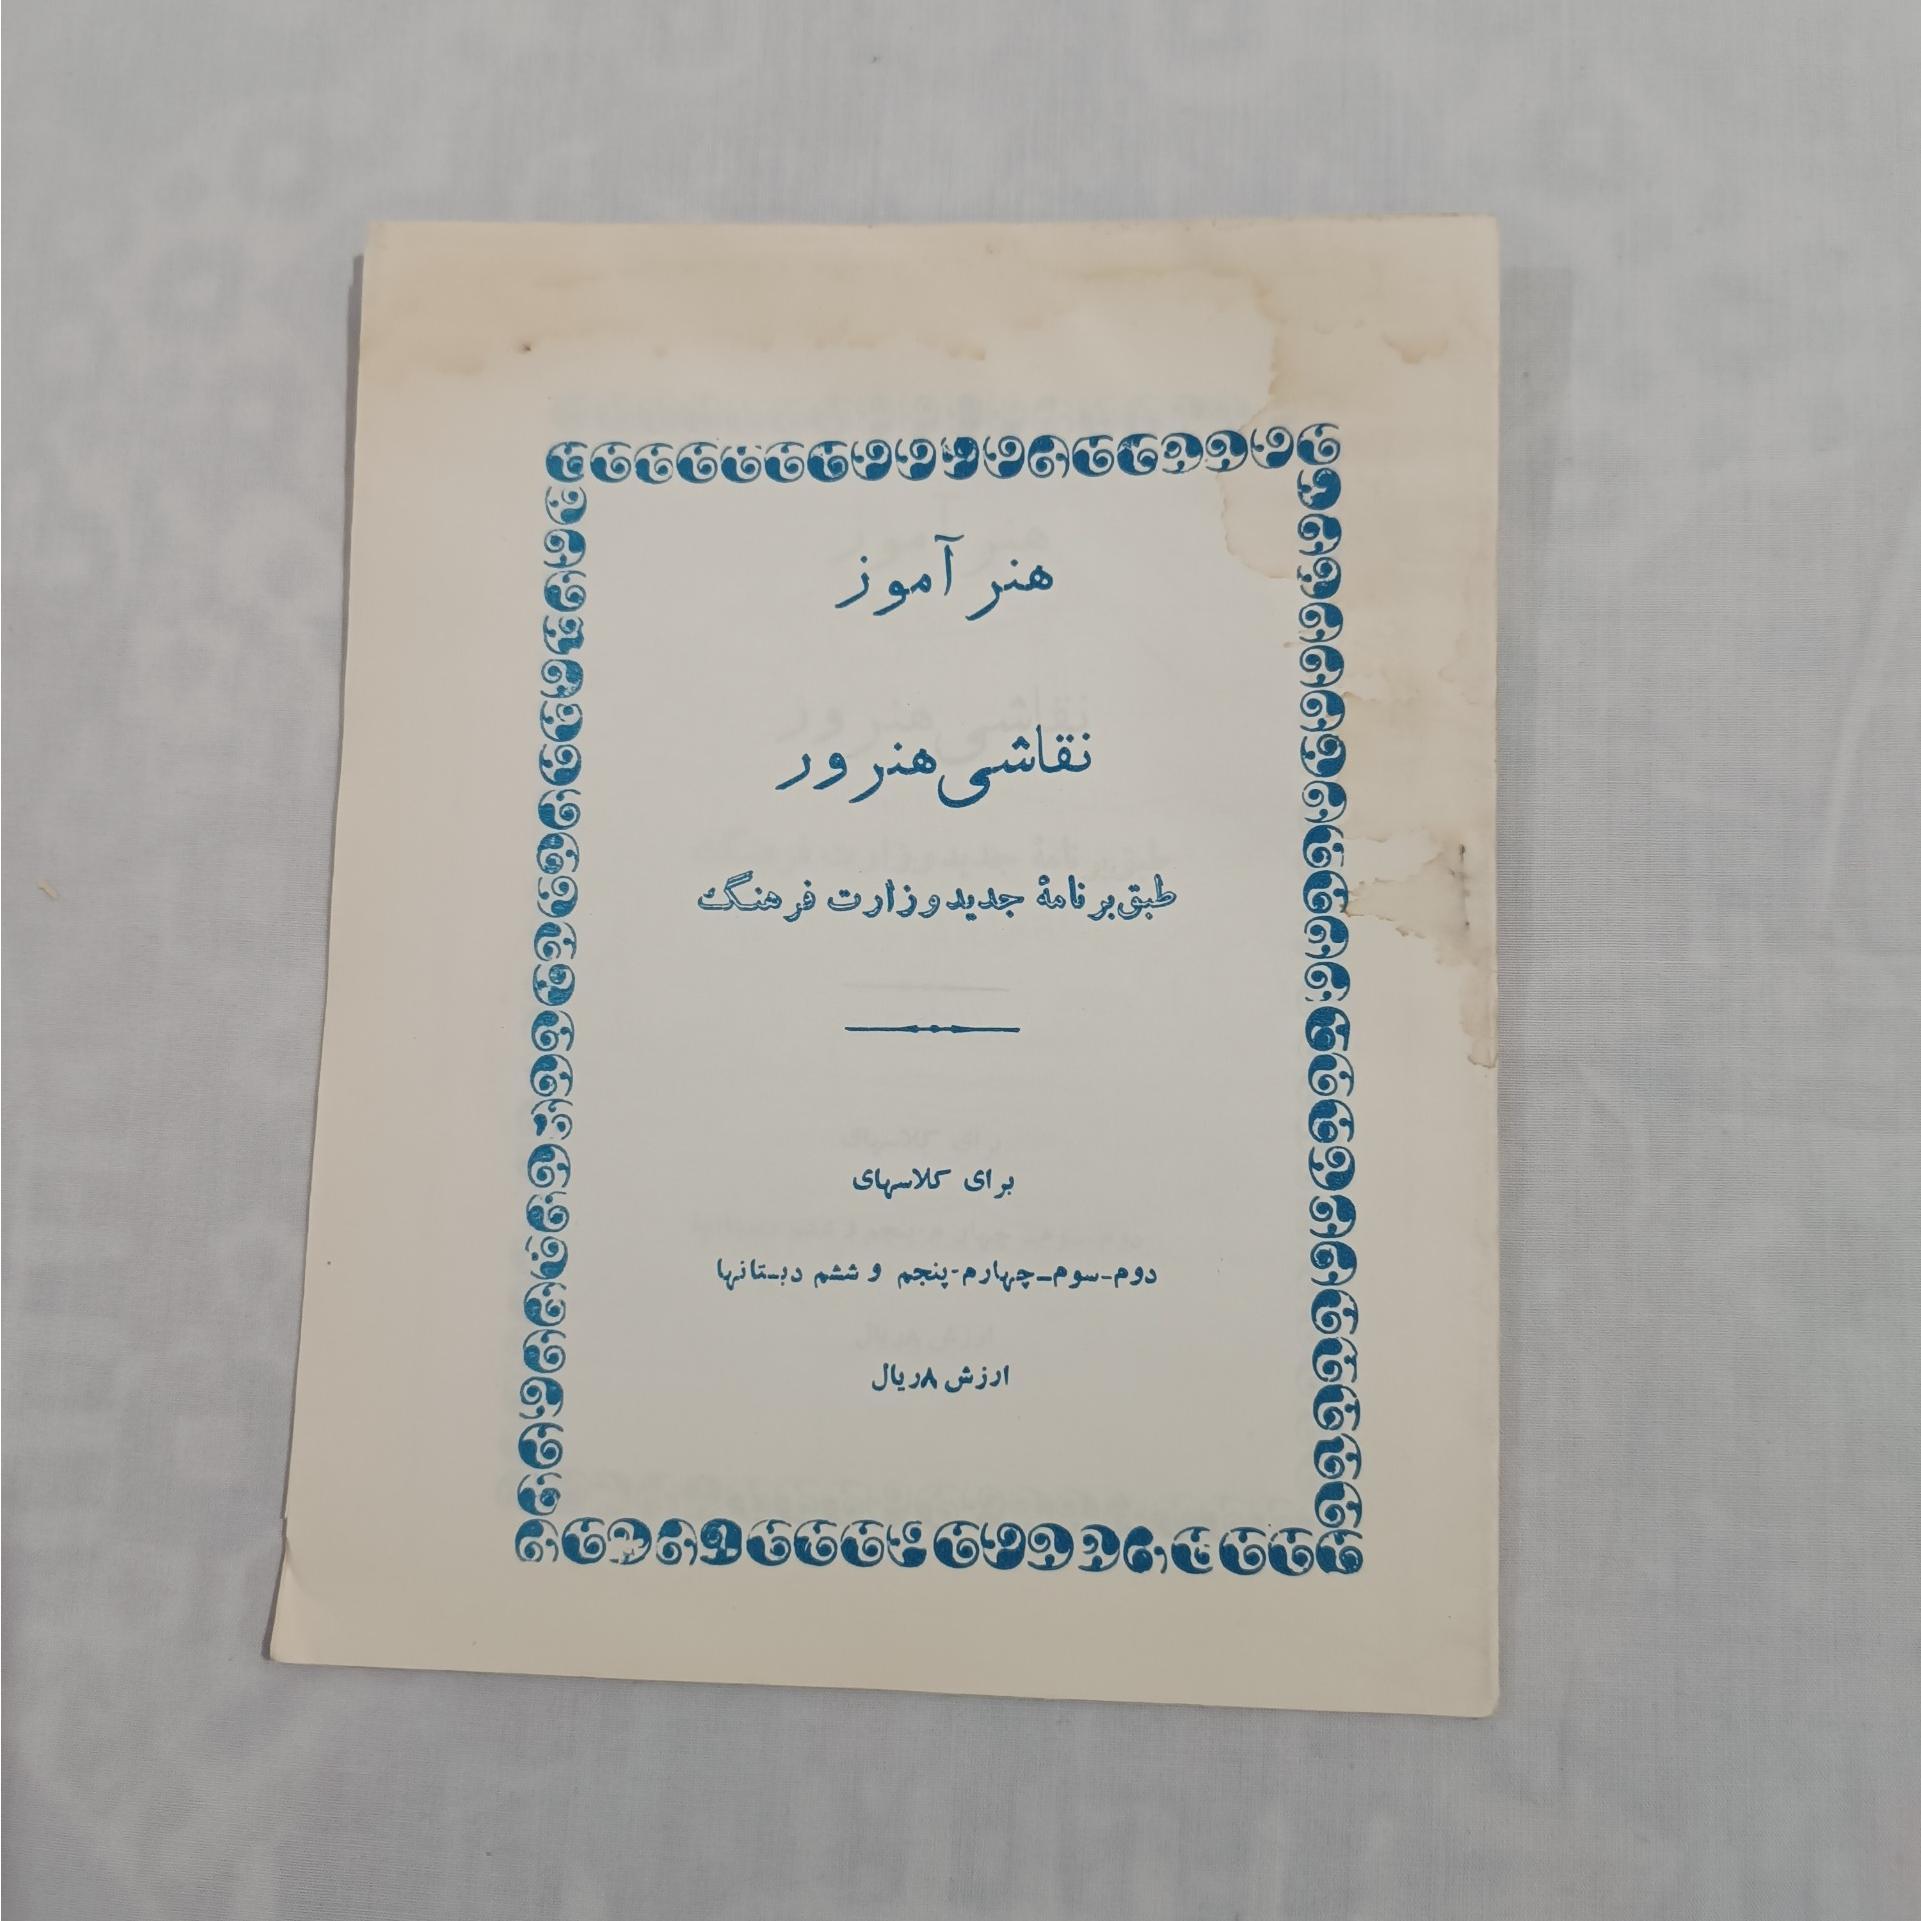 هنر آموز
نقاشی هنرور
طبق برنامهٔ جدید وزارت فرهنگ
برای کلاسهای
دوم-سوم-چهارم-پنجم و ششم دبستانها
ارزش ۸ ریال